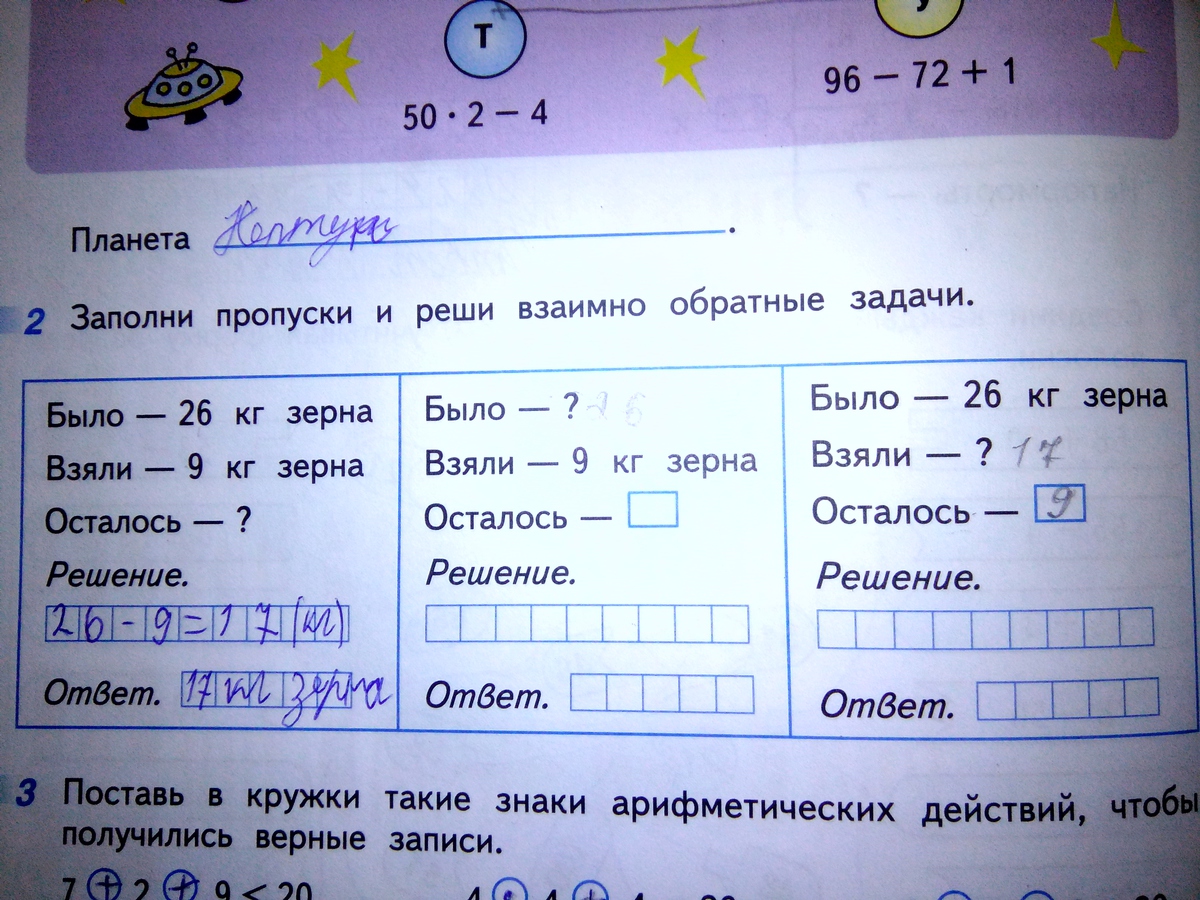 Т
50 · 2 − 4
96 − 72 + 1
Планета Нептун.
2 Заполни пропуски и реши взаимно обратные задачи.
Было — 26 кг зерна
Взяли — 9 кг зерна
Осталось — ?
Решение.
26 - 9 = 17 (кг)
Ответ. 17 кг зерна
Было — ? 26
Взяли — 9 кг зерна
Осталось —
Решение.
Ответ.
Было — 26 кг зерна
Взяли — ? 17
Осталось — 9
Решение.
Ответ.
3 Поставь в кружки такие знаки арифметических действий, чтобы
получились верные записи.
7 + 2 + 9 < 20